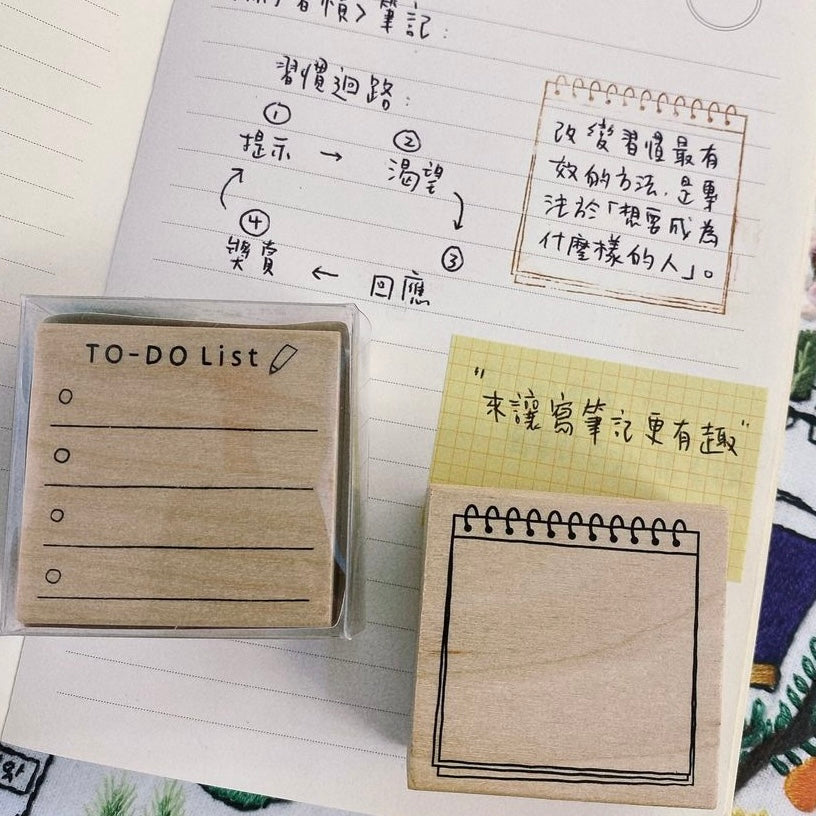 習慣》筆記:
習慣迴路:
①
提示 →
②
渴望
③
回應
④
獎賞 ←
改變習慣最有
效的方法,是專
注於「想要成為
什麼樣的人」。
"來讓寫筆記更有趣"
TO-DO List